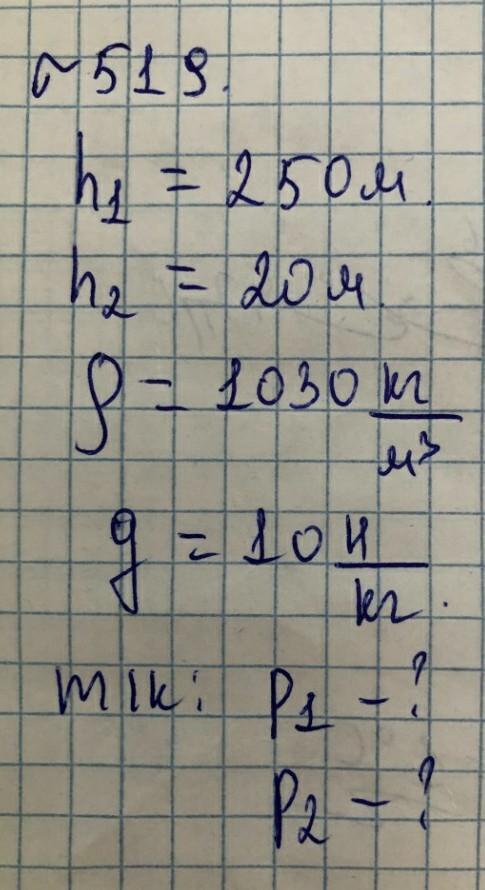 ~519.
h₁ = 250м.
h₂ = 20м.
ρ = 1030 кг/м³
g = 10 Н/кг.
т/к: p₁ - ?
p₂ - ?